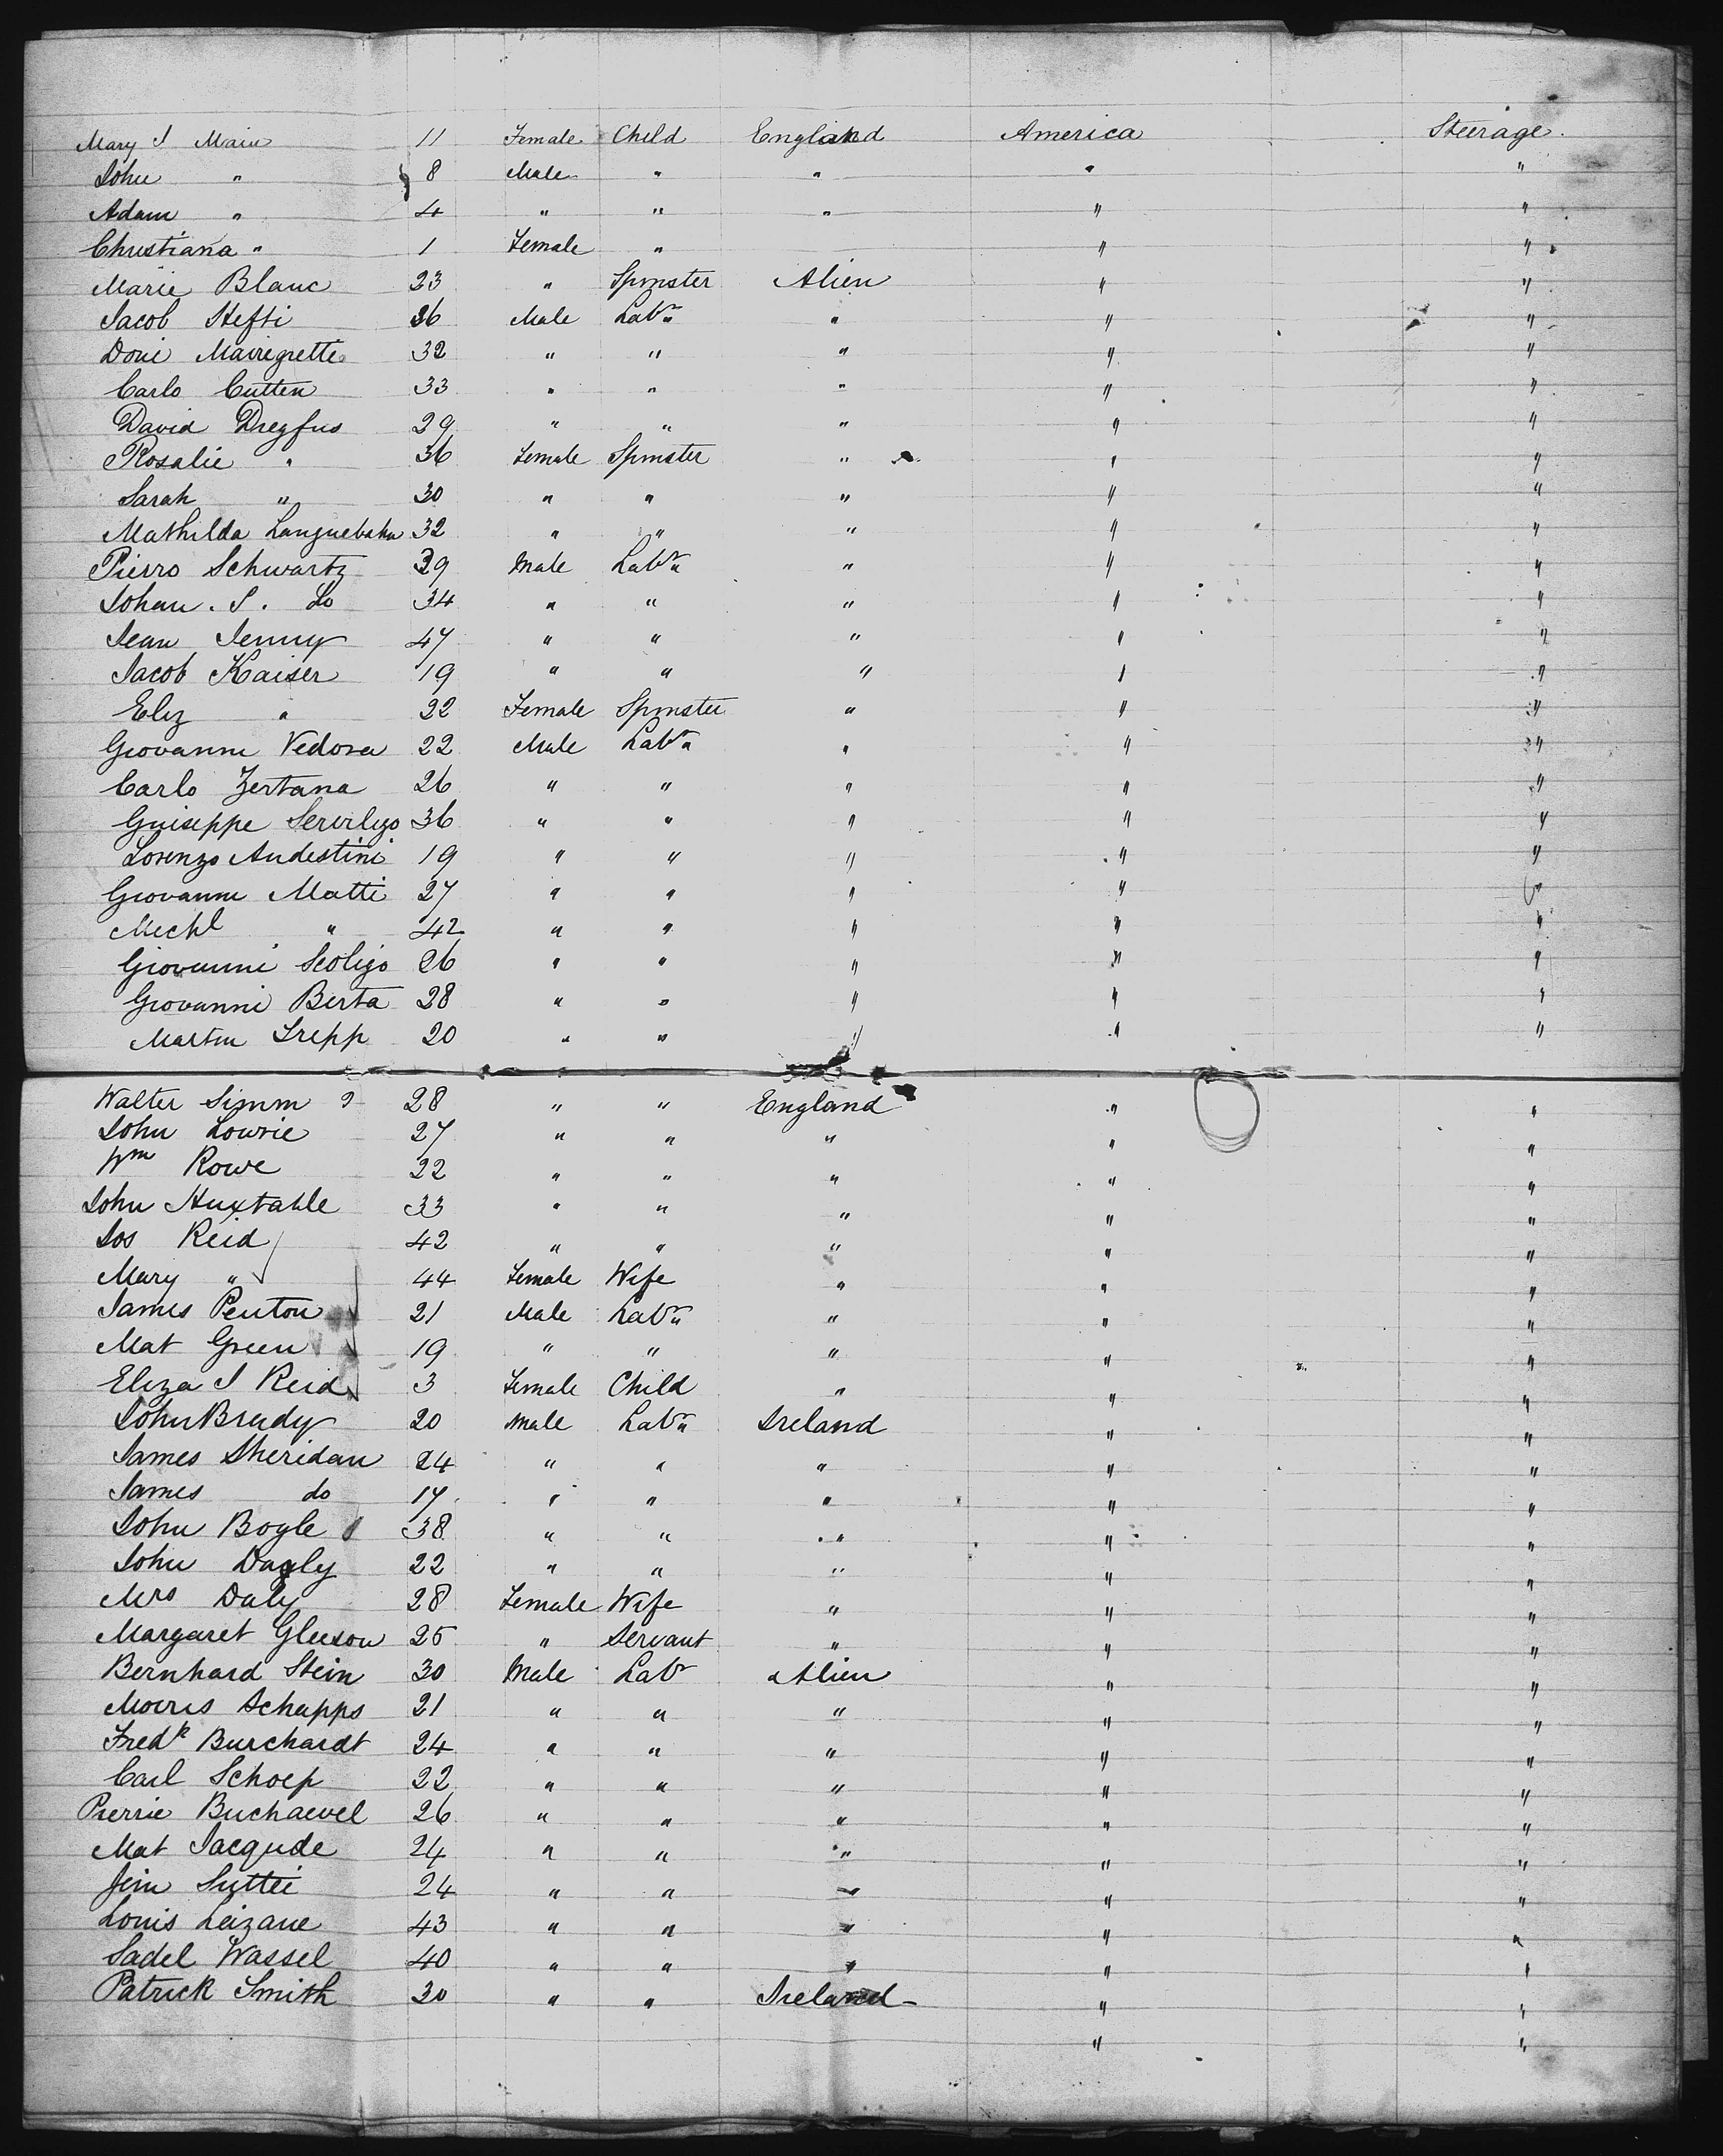 Mary J Main 11 Female Child England America Steerage.
John " 8 Male " " " "
Adam " 4 " " " " "
Christiana " 1 Female " " "
Marie Blanc 23 " Spinster Alien " "
Jacob Hefti 26 Male Labr " " " "
32 " " " " "
Carlo Cutten 33 " " " " "
David Dreyfus 29 " " " " "
Rosalie " 36 Female Spinster " " "
Sarah " 30 " " " " "
Mathilda 32 " " " " "
Pierro Schwartz 39 Male Labr " " " "
Johan. S. Do 34 " " " " "
Jean Jenny 47 " " " " "
Jacob Kaiser 19 " " " " "
Eliz " 22 Female Spinster " " "
Giovanni Vedova 22 Male Labr " " " "
Carlo Zertana 26 " " " " "
Guiseppe 36 " " " " "
Lorenzo Andestini 19 " " " " "
Giovanni Matti 27 " " " " "
Michl " 42 " " " " "
Giovanni Scoligo 26 " " " " "
Giovanni Berta 28 " " " " "
Martin Trepp 20 " " " " "
Walter Simm 28 " " England " "
John Lowrie 27 " " " " "
Wm Rowe 22 " " " " "
John Huxtable 33 " " " " "
Jos Reid 42 " " " " "
Mary " 44 Female Wife " " "
James Penton 21 Male Labr " " " "
Mat Green 19 " " " " "
Eliza J Reid 3 Female Child " " "
John Brady 20 Male Labr " Ireland " "
James Sheridan 24 " " " " "
James do 17 " " " " "
John Boyle 38 " " " " "
John 22 " " " " "
Mrs Daly 28 Female Wife " " "
Margaret Gleeson 25 " Servant " " "
Bernhard Stein 30 Male Labr Alien " "
Morris Schapps 21 " " " " "
Fredk Burchardt 24 " " " " "
Carl Schoep 22 " " " " "
Pierrie 26 " " " " "
Mat Jacqude 24 " " " " "
Jim Suttei 24 " " " " "
Louis Leizane 43 " " " " "
Sadel Wassel 40 " " " " "
Patrick Smith 30 " " Ireland " "
" "